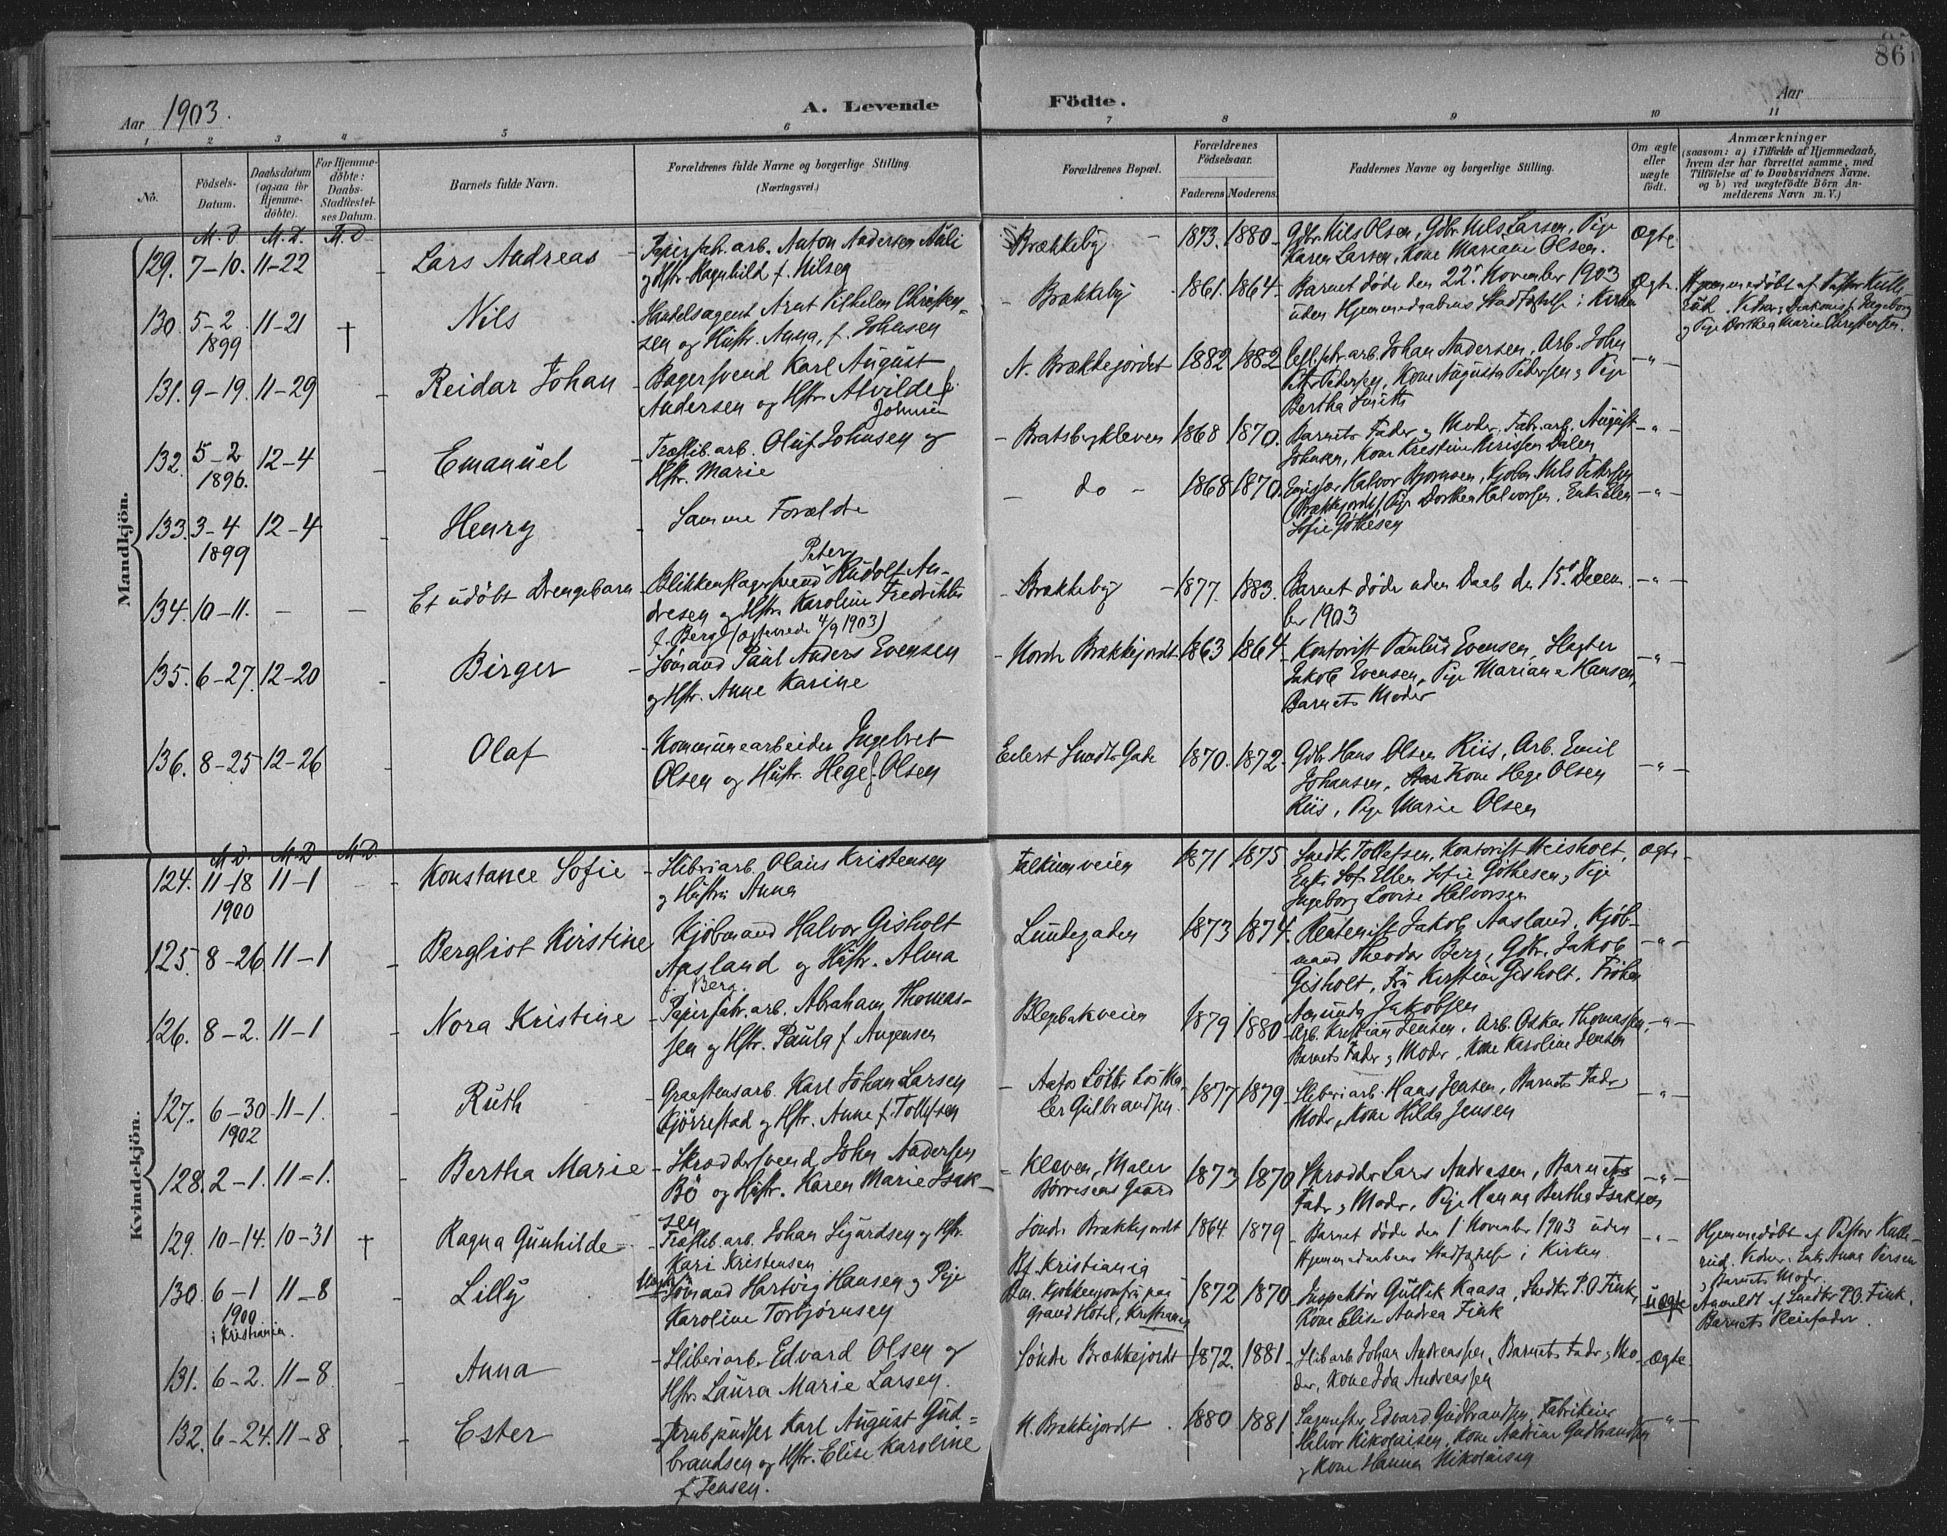 86
Aar 1903.
A. Levende Födte.
Aar
1 2 3 4 5 6 7 8 9 10 11
No.
Födsels-Datum.
Daabsdatum (ogsaa for Hjemmedöbte).
For Hjemmedöbte: Daabs-Stadfæstelses Datum.
Barnets fulde Navn.
Forældrenes fulde Navne og borgerlige Stilling (Næringsvei.)
Forældrenes Bopæl.
Forældrenes Födselsaar.
Faderens Moderens.
Faddernes Navne og borgerlige Stilling.
Om ægte eller uægte født.
Anmærkninger
(saasom: a) i Tilfælde af Hjemmedaab, hvem der har forrettet samme, med Tilföielse af to Daabsvidners Navne. og b) ved uægtefödte Börn Anmelderens Navn m. V.)
Mandkjön.
M. D. M. D. M. D.
129. 7-10. 11-22 - Lars Andreas - Papirfabr.arb. Anton Andersen Auli
og Hstr. Ragnhild f. Nilsen
Brækkeby - 1873. 1880 - Gdbr. Nils Olsen, Gdbr. Nils Larsen, Pige
Karen Larsen, Kone Mariane Olsen. Ægte
130. 5-2 1899 11-21 † Nils - Handelsagent Arnt Vilhelm Christen-
sen og Hustr. Anna, f. Johnsen
- Brækkeby - 1861. 1864 - Barnet døde den 22' November 1903
uden Hjemmedaabens Stadfæstelse i Kirken Ægte.
Hjemmedøbt af Pastor Kulle
rud. Vidner, Ingeborg
og Pige Dorthea Marie Christensen.
131. 9-19. 11-29 - Reidar Johan - Bagersvend Karl August
Andersen og Hstr. Alvilde f.
Johnsen
N. Brækkejordet 1882 1882 arb. Johan Andersen, Arb. John
Pedersen, Kone Augusta Pedersen, Pige
Bertha Smith - " -
132. 5-2 1896. 12-4 - Emanuel - Træslib.arb. Oluf Johnsen og
Hstr. Marie
- Bratsbergkleven 1868 1870. Barnets Fader og Moder, Fabr.arb. August
Johnsen, Kone Kristine Dalen - " -
133. 3-4 1899 12-4 - Henry - Samme Forældre
- do - 1868 1870. Halvor Bjørnsen, Nils Pettersen
(Brækkejordet), Pige Dorthea Halvorsen, Enke Elen
Sofie Göthesen - " -
134. 10-11. - - Et udöbt Drengebarn - Blikkenslagersvend Peter Rudolf An-
dresen og Hstr. Karoline Fredrikke
f. Berge (ægteviede 4/9 1903)
- Brækkeby - 1877. 1883. Barnet døde uden Daab den 15' Decem
ber 1903 - " -
135. 6-27. 12-20 - Birger - Sømand Paul Anders Evensen
og Hstr. Anne Karine
- Nordre Brækkejordet 1863 1864 - Kontorist Evensen, Slagter
Jakob Evensen, Pige Mariane Hansen,
Barnets Moder - " -
136. 8-25 12-26 - Olaf - Kommunearbeider Ingebret
Olsen og Hustr. Hege f. Olsen
Eilert Sundts Gade 1870. 1872. Gdbr. Hans Olsen Riis, Arb. Emil
Johansen, Kone Hege Olsen
Riis, Pige Marie Olsen - " -
Kvindekjön.
M. D. M. D. M. D.
124. 11-18 1900 11-1 - Konstance Sofie - Sliberiarb. Olaus Kristensen
og Hustru Anna
Falkumveien 1871 1875 Snedk. Tollefsen, Kontorist Weisholt,
Enke Ellen Sofie Göthesen, Pige
Ingeborg Lovise Halvorsen ægte -
125. 8-26 11-1 - Bergliot Kirstine Kjöbmand Halvor Gisholt
Aasland og Hustr. Alma
f. Berg.
Lundegaden 1873 1874. Rentenist Jakob Aasland, Kjöb-
mand Theodor Berg, Gdbr. Jakob
Gisholt, Fru Kirstine Gisholt, Frøken
Jakobsen - " -
126. 8-2. 11-1 - Nora Kristine - Papirfabr.arb. Abraham Thomas-
sen og Hstr. Paula f. Augensen
Blepbakveien 1879 1880 Arb. Kristian Jensen, Arb. Oskar Thomassen,
Barnets Fader og Moder, Kone Karoline Jensen - " -
127. 6-30 1902 11-1. - Ruth - Graastensarb. Karl Johan Larsen
Gjörrestad og Hstr. Anne f. Tollefsen
- Gulbrandsen. 1877 1879 Sliberiarb. Hans Jensen, Barnets Fader,
Moder, Kone Hilda Jensen - " -
128. 2-1. 11-1. - Bertha Marie - Skræddersvend John Andersen
Bö og Hustr. Karen Marie Isak-
sen
- Kleven, Maler
Börresens Gaard 1873 1870 Skrædder Lars Andresen, Barnets
Fader og Moder, Pige Hanna Bertha Isaksen - " -
129. 10-14. 10-31 † Ragna Gunhilde - Træslib.arb. Johan Sigurdsen og Hstr.
Kari Kristensen
Söndre Brækkejordet 1864 1879 Barnet døde den 1 November 1903 uden
Hjemmedaabens Stadfæstelse i Kirken. - " -
Hjemmedøbt af Pastor Kulle-
rud. Vidner. Enke Anna Persen
og Barnets Moder.
130. 6-1 1900 i Kristiania. 11-8 - Lilly Ungk. Sømand Hartvig Hansen og Pige
Karoline Torbjörnsen
Bf. Kristiania
Bm. Kjøkkenjomfru paa
Grand Hotel, Kristiania 1872 1870. Inspektör Gullik Kaasa, Snedker P.O. Fink,
Kone Elise Andrea Fink uægte
Anmeldt af Snedker P.O. Fink,
Barnets Pleiefader.
131. 6-2. 11-8 - Anna - Sliberiarb. Edvard Olsen og
Hstr. Laura Marie Larsen.
Söndre Brækkejordet 1872. 1881 - Slib.arb. Johan Andreassen, Barnets Fader og Mo-
der, Kone Ida Andreassen ægte.
132. 6-24. 11-8. - Ester - Karl August Gud-
brandsen og Hstr. Elise Karoline
f. Jensen.
N. Brækkejordet. 1880 1881. Sagmester Edvard Gudbrandsen, Fabrikeier
Halvor Nikolaisen, Kone Andrine Gudbrandsen
og Kone Hanna Nikolaisen - " -